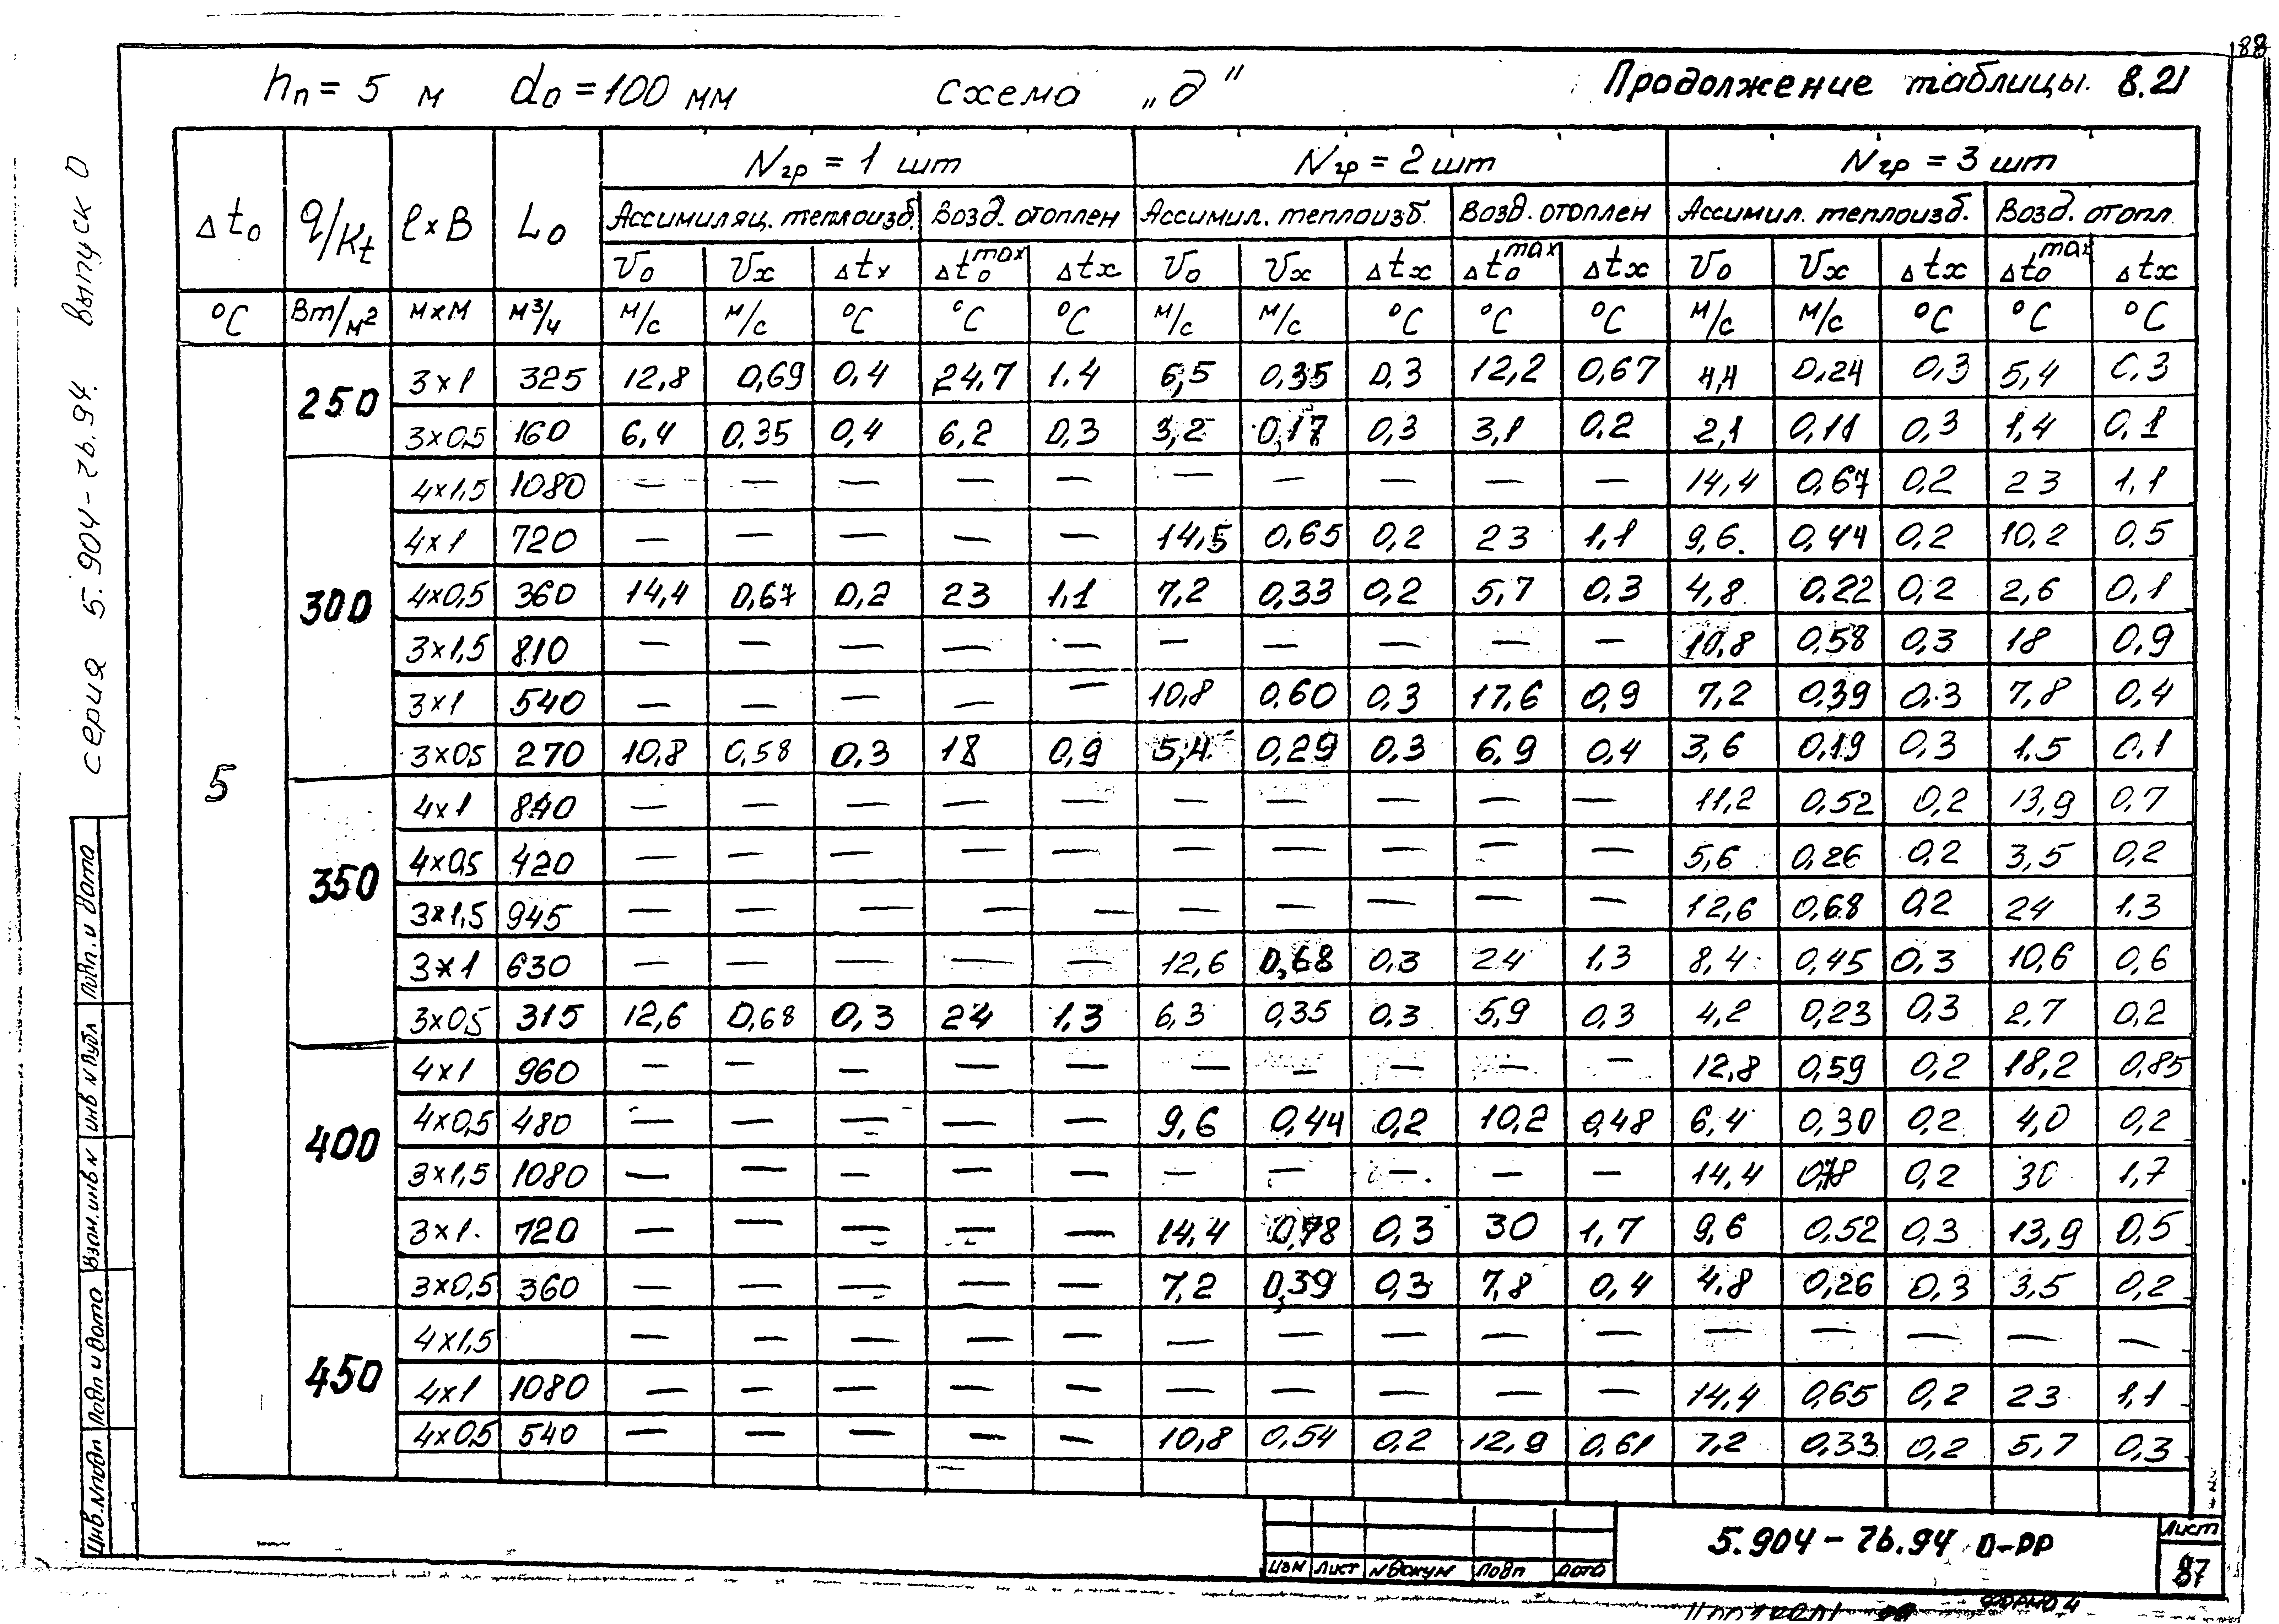 88
hп = 5 м d₀ = 100 мм схема „д" Продолжение таблицы. 8.21
Δt₀ q/Kt ℓ×B L₀ Nгр = 1 шт Nгр = 2 шт Nгр = 3 шт
Ассимиляц. теплоизб. Возд. отоплен Ассимил. теплоизб. Возд. отоплен Ассимил. теплоизб. Возд. отопл.
V₀ Vx Δtx Δt₀max Δtx V₀ Vx Δtx Δt₀max Δtx V₀ Vx Δtx Δt₀max Δtx
°C Вт/м² м×м м³/ч м/с м/с °C °C °C м/с м/с °C °C °C м/с м/с °C °C °C
5
250 3×1 325 12,8 0,69 0,4 24,7 1,4 6,5 0,35 0,3 12,2 0,67 4,4 0,24 0,3 5,4 0,3
3×0,5 160 6,4 0,35 0,4 6,2 0,3 3,2 0,17 0,3 3,1 0,2 2,1 0,11 0,3 1,4 0,1
300 4×1,5 1080 — — — — — — — — — — 14,4 0,67 0,2 23 1,1
4×1 720 — — — — — 14,5 0,65 0,2 23 1,1 9,6 0,44 0,2 10,2 0,5
4×0,5 360 14,4 0,67 0,2 23 1,1 7,2 0,33 0,2 5,7 0,3 4,8 0,22 0,2 2,6 0,1
3×1,5 810 — — — — — — — — — — 10,8 0,58 0,3 18 0,9
3×1 540 — — — — — 10,8 0,60 0,3 17,6 0,9 7,2 0,39 0,3 7,8 0,4
3×0,5 270 10,8 0,58 0,3 18 0,9 5,4 0,29 0,3 6,9 0,4 3,6 0,19 0,3 1,5 0,1
350 4×1 840 — — — — — — — — — — 11,2 0,52 0,2 13,9 0,7
4×0,5 420 — — — — — — — — — — 5,6 0,26 0,2 3,5 0,2
3×1,5 945 — — — — — — — — — — 12,6 0,68 0,2 24 1,3
3×1 630 — — — — — 12,6 0,68 0,3 24 1,3 8,4 0,45 0,3 10,6 0,6
3×0,5 315 12,6 0,68 0,3 24 1,3 6,3 0,35 0,3 5,9 0,3 4,2 0,23 0,3 2,7 0,2
400 4×1 960 — — — — — — — — — — 12,8 0,59 0,2 18,2 0,85
4×0,5 480 — — — — — 9,6 0,44 0,2 10,2 0,48 6,4 0,30 0,2 4,0 0,2
3×1,5 1080 — — — — — — — — — — 14,4 0,78 0,2 30 1,7
3×1 720 — — — — — 14,4 0,78 0,3 30 1,7 9,6 0,52 0,3 13,9 0,5
3×0,5 360 — — — — — 7,2 0,39 0,3 7,8 0,4 4,8 0,26 0,3 3,5 0,2
450 4×1,5 — — — — — — — — — — — — — — —
4×1 1080 — — — — — — — — — — 14,4 0,65 0,2 23 1,1
4×0,5 540 — — — — — 10,8 0,54 0,2 12,9 0,61 7,2 0,33 0,2 5,7 0,3
серия 5.904-7в.94. выпуск 0
Инв.Nподп Подп и дата Взам.инв N Инв N дубл Подп. и дата
Изм Лист N докум Подп Дата
5.904-7в.94 0-РР
Лист
87
Формо 4